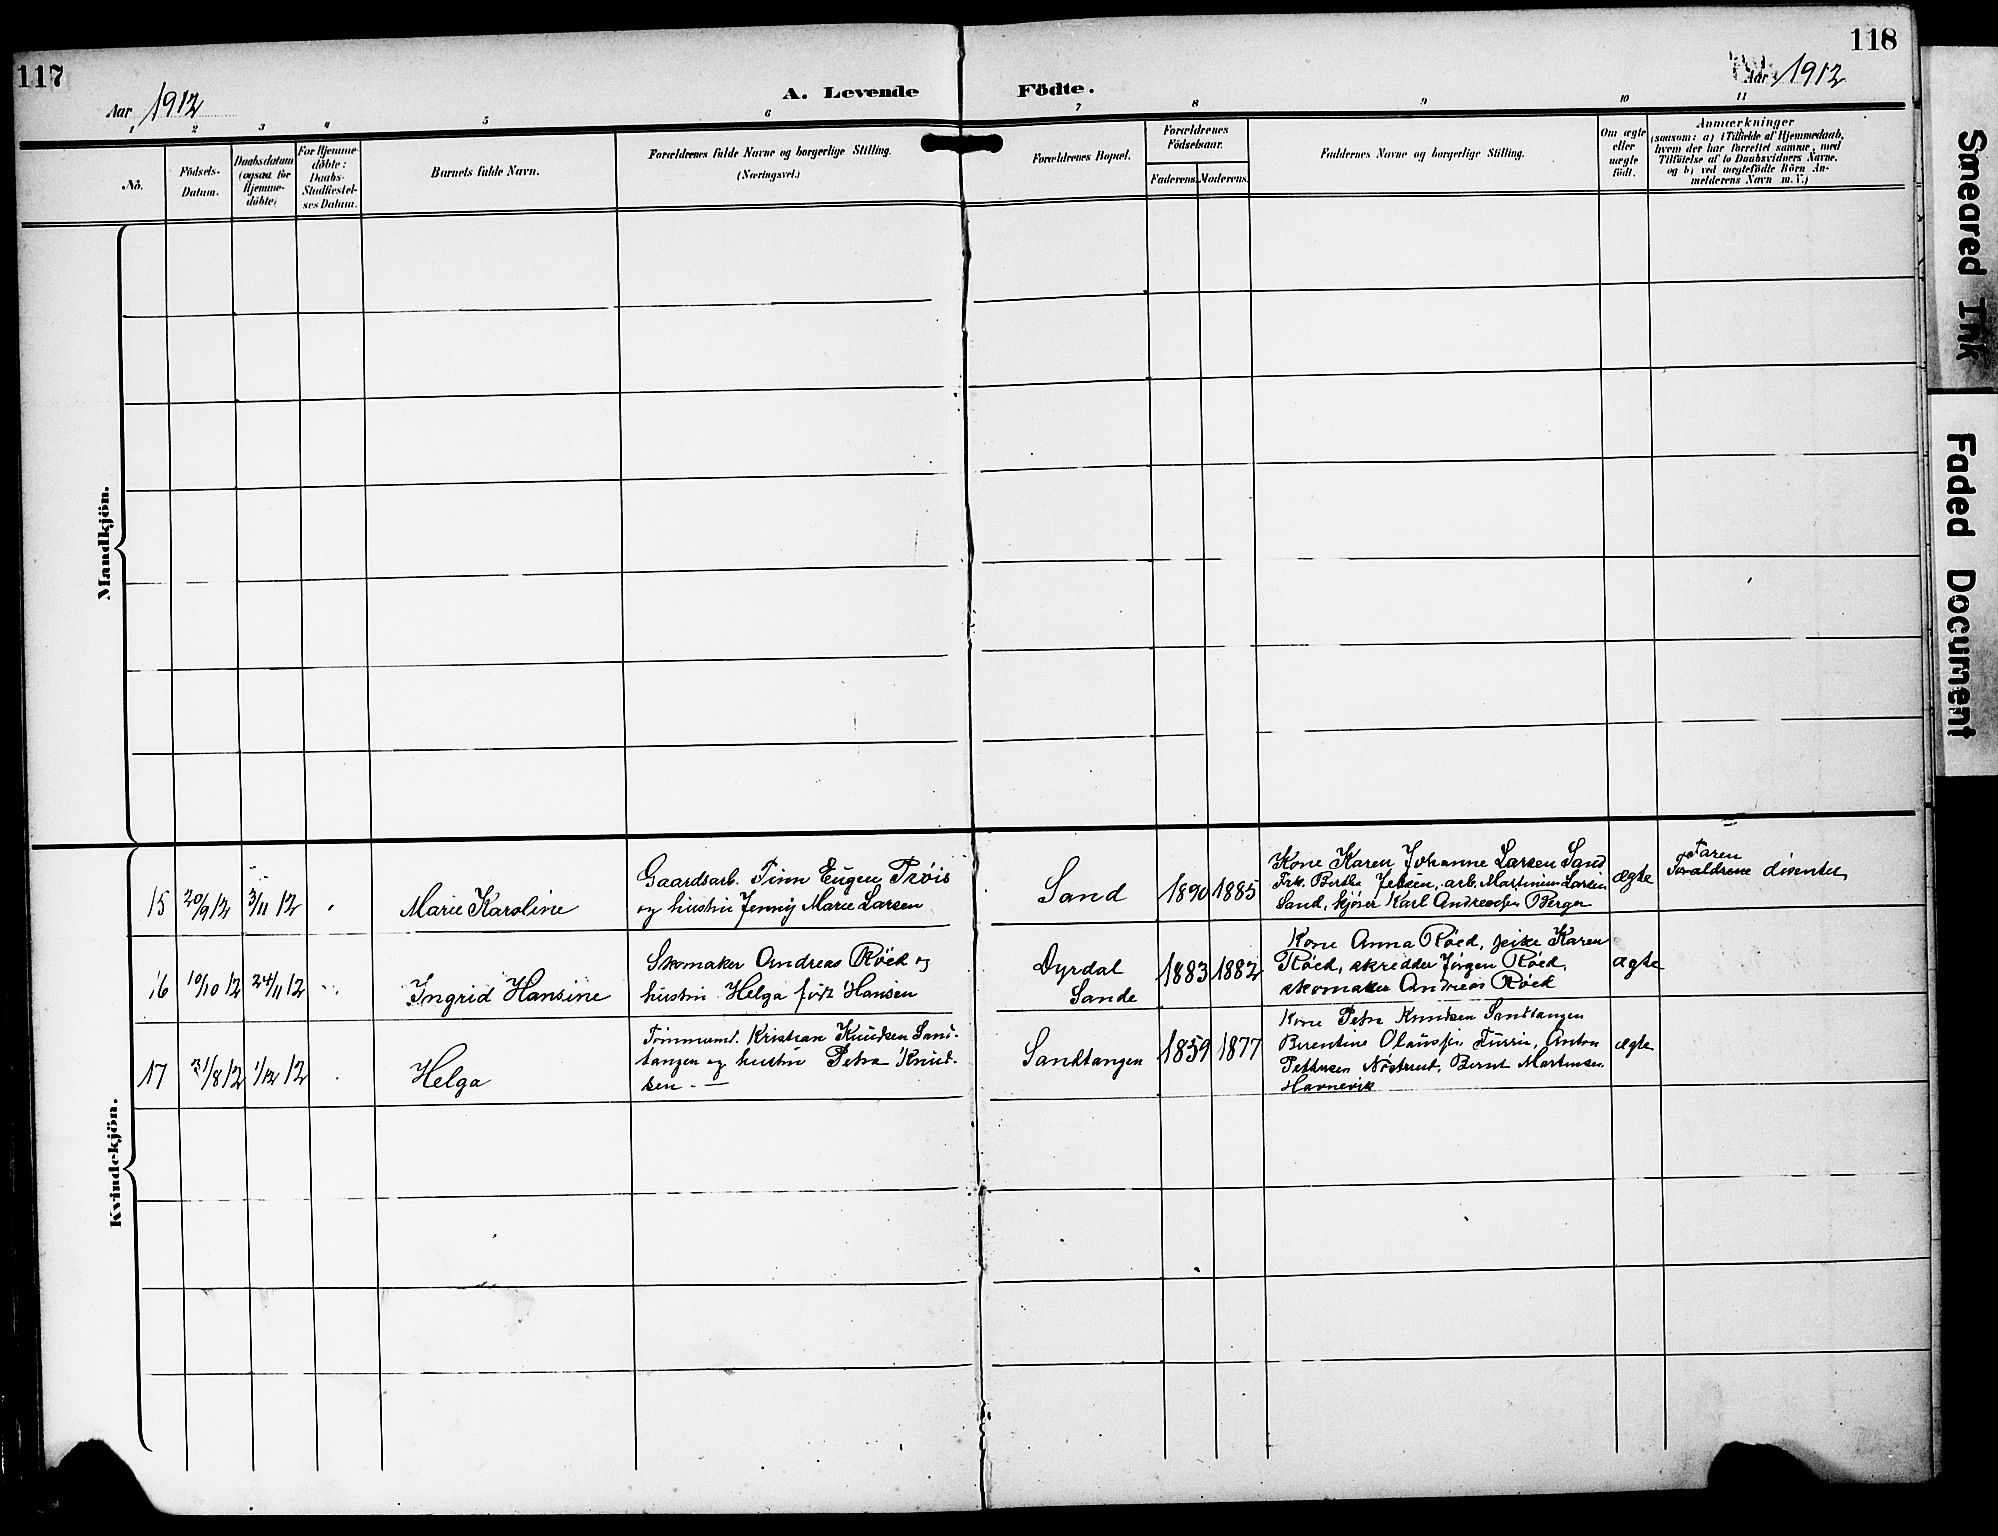 117
118
Aar 1912
A. Levende Födte.
Aar 1912
1 2 3 4 5 6 7 8 9 10 11
No.
Födsels-
Datum.
Daabsdatum
(ogsaa for
Hjemme-
döbte)
For Hjemme-
döbte:
Daabs-
Stadfæstel-
ses Datum.
Barnets fulde Navn.
Forældrenes fulde Navne og borgerlige Stilling.
(Næringsvei.)
Forældrenes Bopæl.
Forældrenes
Födselsaar.
Faderens. Moderens.
Faddernes Navne og borgerlige Stilling.
Om ægte
eller
uægte
födt.
Anmærkninger
(saasom: a) i Tilfælde af Hjemmedaab,
hvem der har forrettet samme, med
Tilföielse af to Daabsvidners Navne.
og b) ved uægtefödte Börn An-
melderens Navn m. V.)
Mandkjön.
Kvindekjön.
15 20/9 12 3/11 12
Marie Karoline
Gaardsarb. Finn Eugen Trøis
og hustru Jenny Marie Larsen
Sand
1890 1885
Kone Karen Johanne Larsen Sand
Frk. Bertha Jebsen, arb. Martinius Larsen
Sand, kjører Karl Andreassen Berger
ægte
Faren
Forældrene disenter
16 10/10 12 24/11 12
Ingrid Hansine
Skomaker Andreas Røed og
hustru Helga født Hansen
Dyrdal
Sande
1883 1882
Kone Anna Røed, pike Karen
Røed, skredder Jørgen Røed,
skomaker Andreas Røed
ægte
17 21/8 12 1/12 12
Helga
Tømmermd. Kristian Knudsen Sand-
tangen og hustru Petra Knud-
sen
Sandtangen
1859 1877
Kone Petra Knudsen Sandtangen
Berentine Olaussen, Anton
Pettersen Nøstrud, Bernt Martinsen
Havnevik
ægte
Smeared Ink
Faded Document